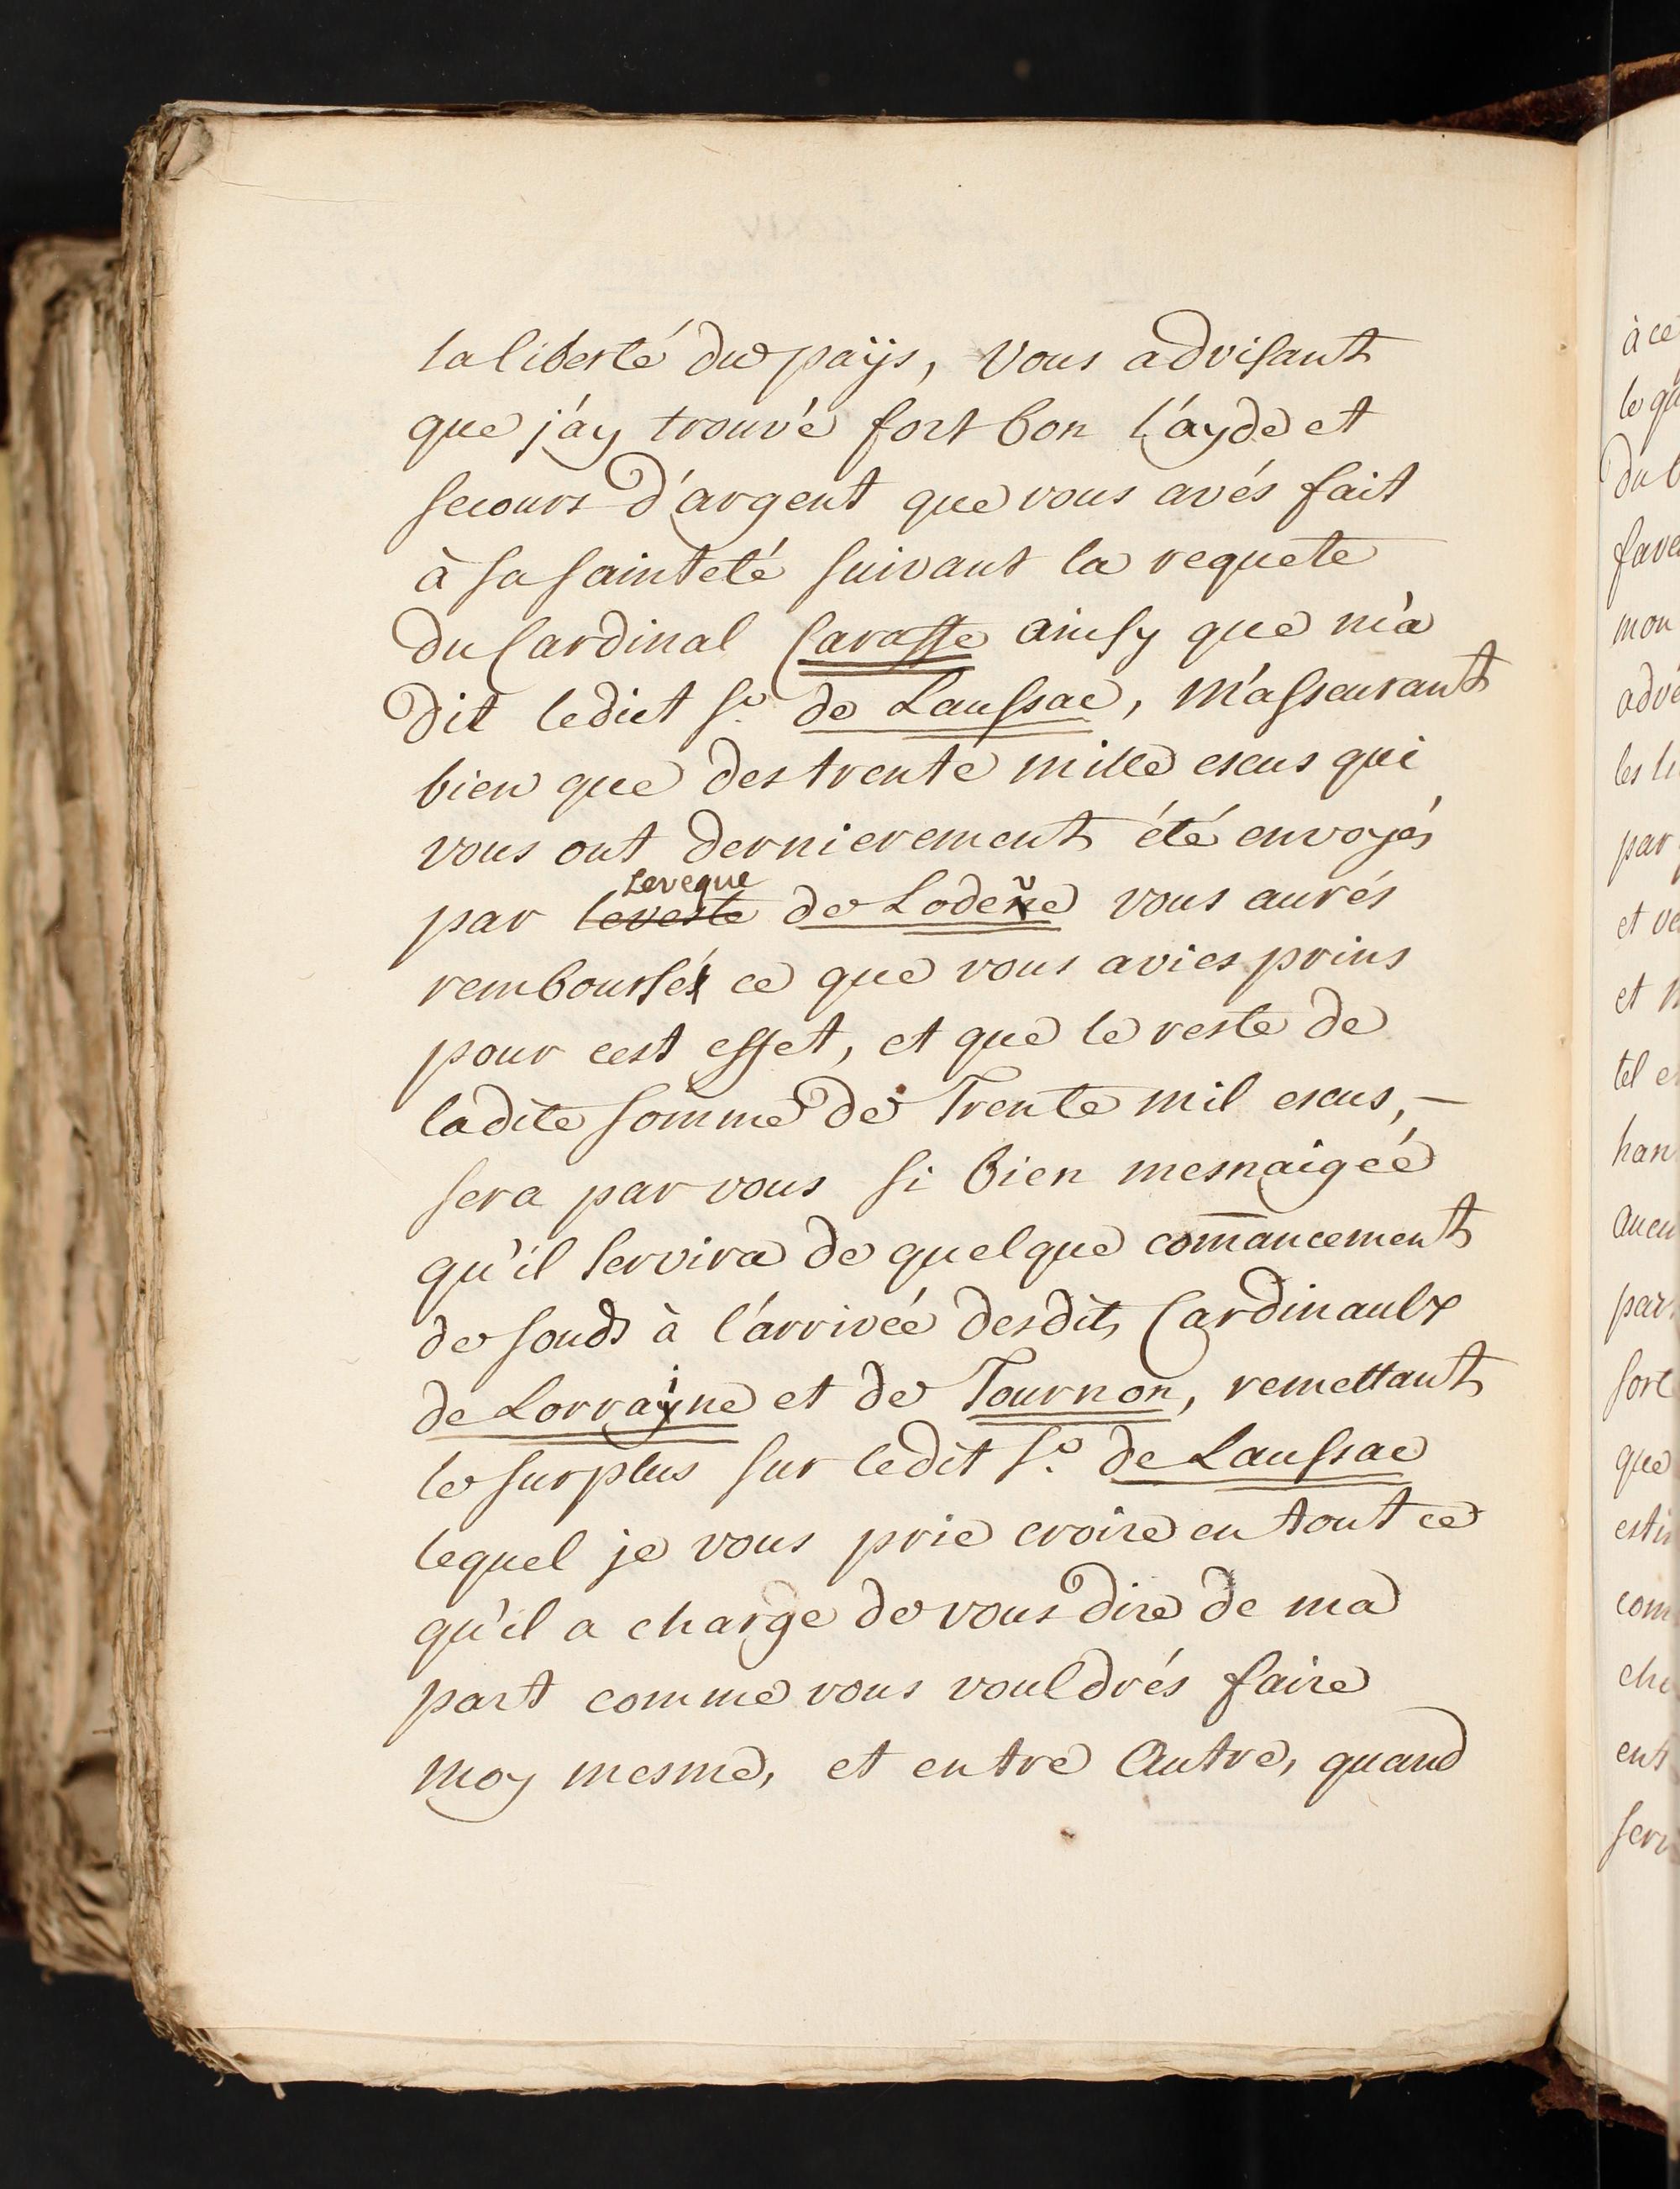 la liberté du païjs, Vous advisant
que j'ay trouvé fort bon l'ayde et
secours d'argent que vous avés fait
à sa sainteté suivant la requete
du Cardinal Caraffe ainsy que m'a
dit ledict Sr. de Laussac, M'asseurant
bien que des trente mille escus qui
vous ont dernierement été envoyés
Leveque
par leveste de Lodeve vous aurés
remboursés ce que vous avies prins
pour cest effet, et que le reste de
ladite somme de Trente mil escus, —
sera par vous si bien mesnaigéé
qu'il servira de quelque com̄ancement
de fonds à l'arrivéé desdits Cardinaulx
de Lorraine et de Tournon, remettant
le surplus sur ledit Sr. de Laussac
lequel je vous prie croire en tout ce
qu'il a charge de vous dire de ma
part comme vous vouldrés faire
moy mesme, et entre Autre, quand
à ce
mon
par
et
que